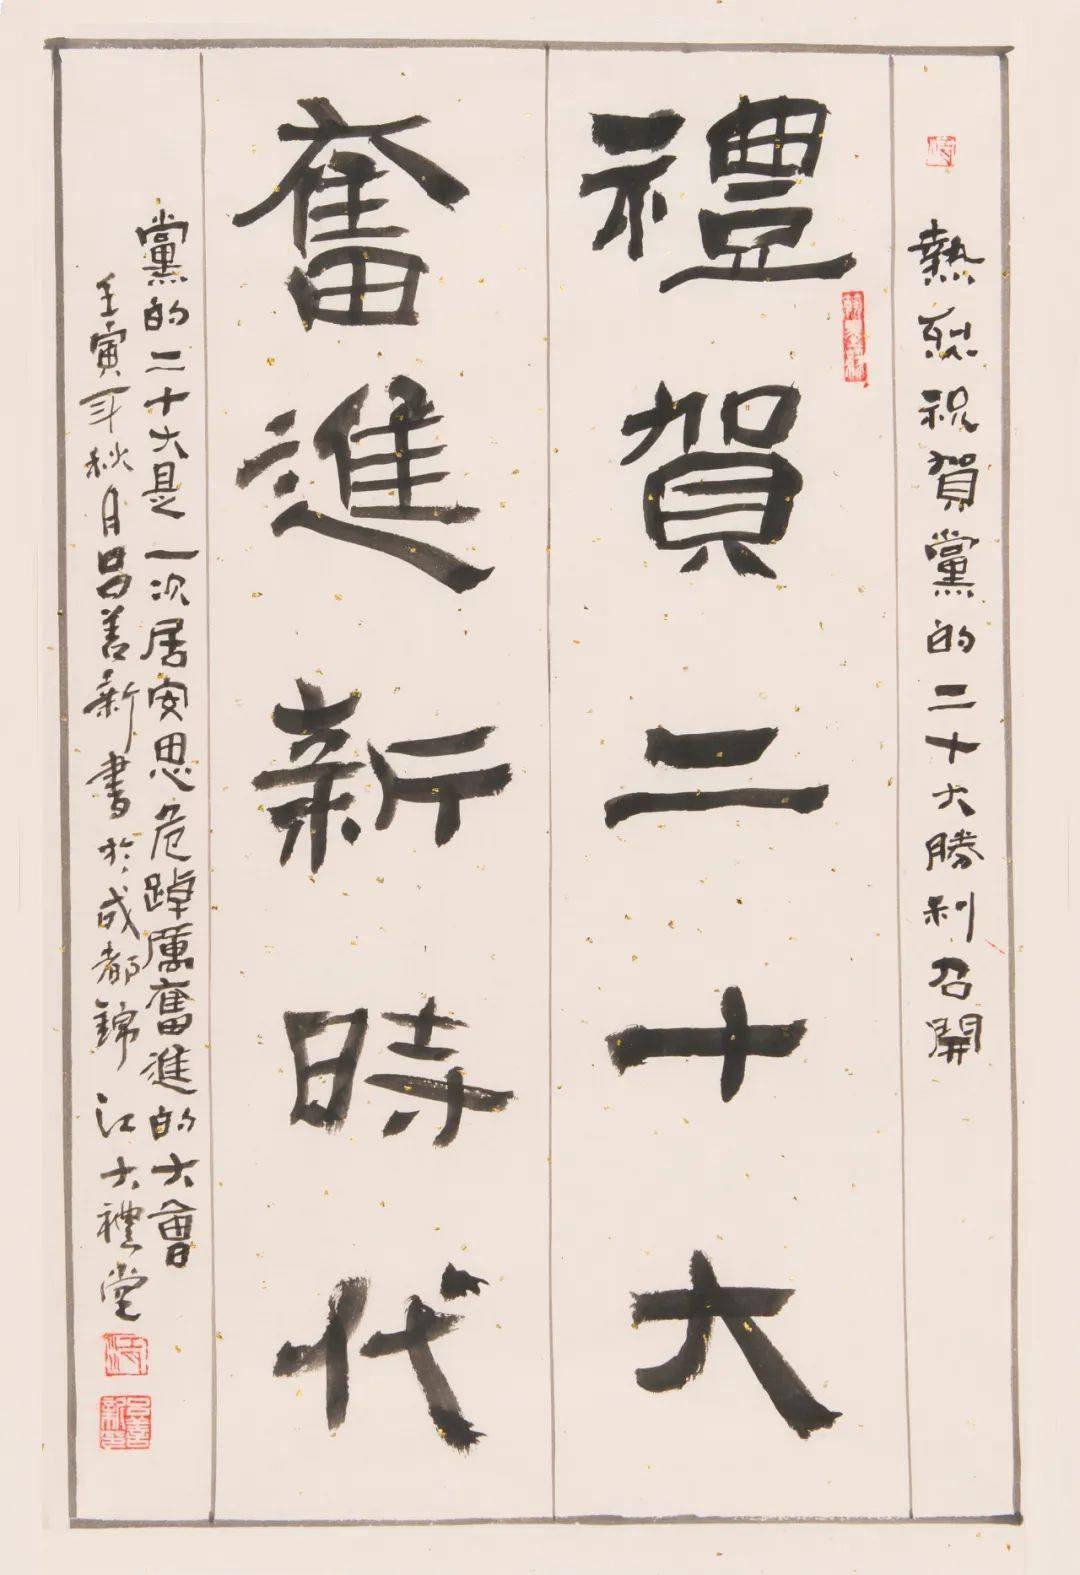 熱烈祝賀黨的二十大勝利召開
禮賀二十大
奮進新時代
黨的二十大是一次居安思危踔厲奮進的大會
壬寅年秋月呂善新書於成都錦江大禮堂